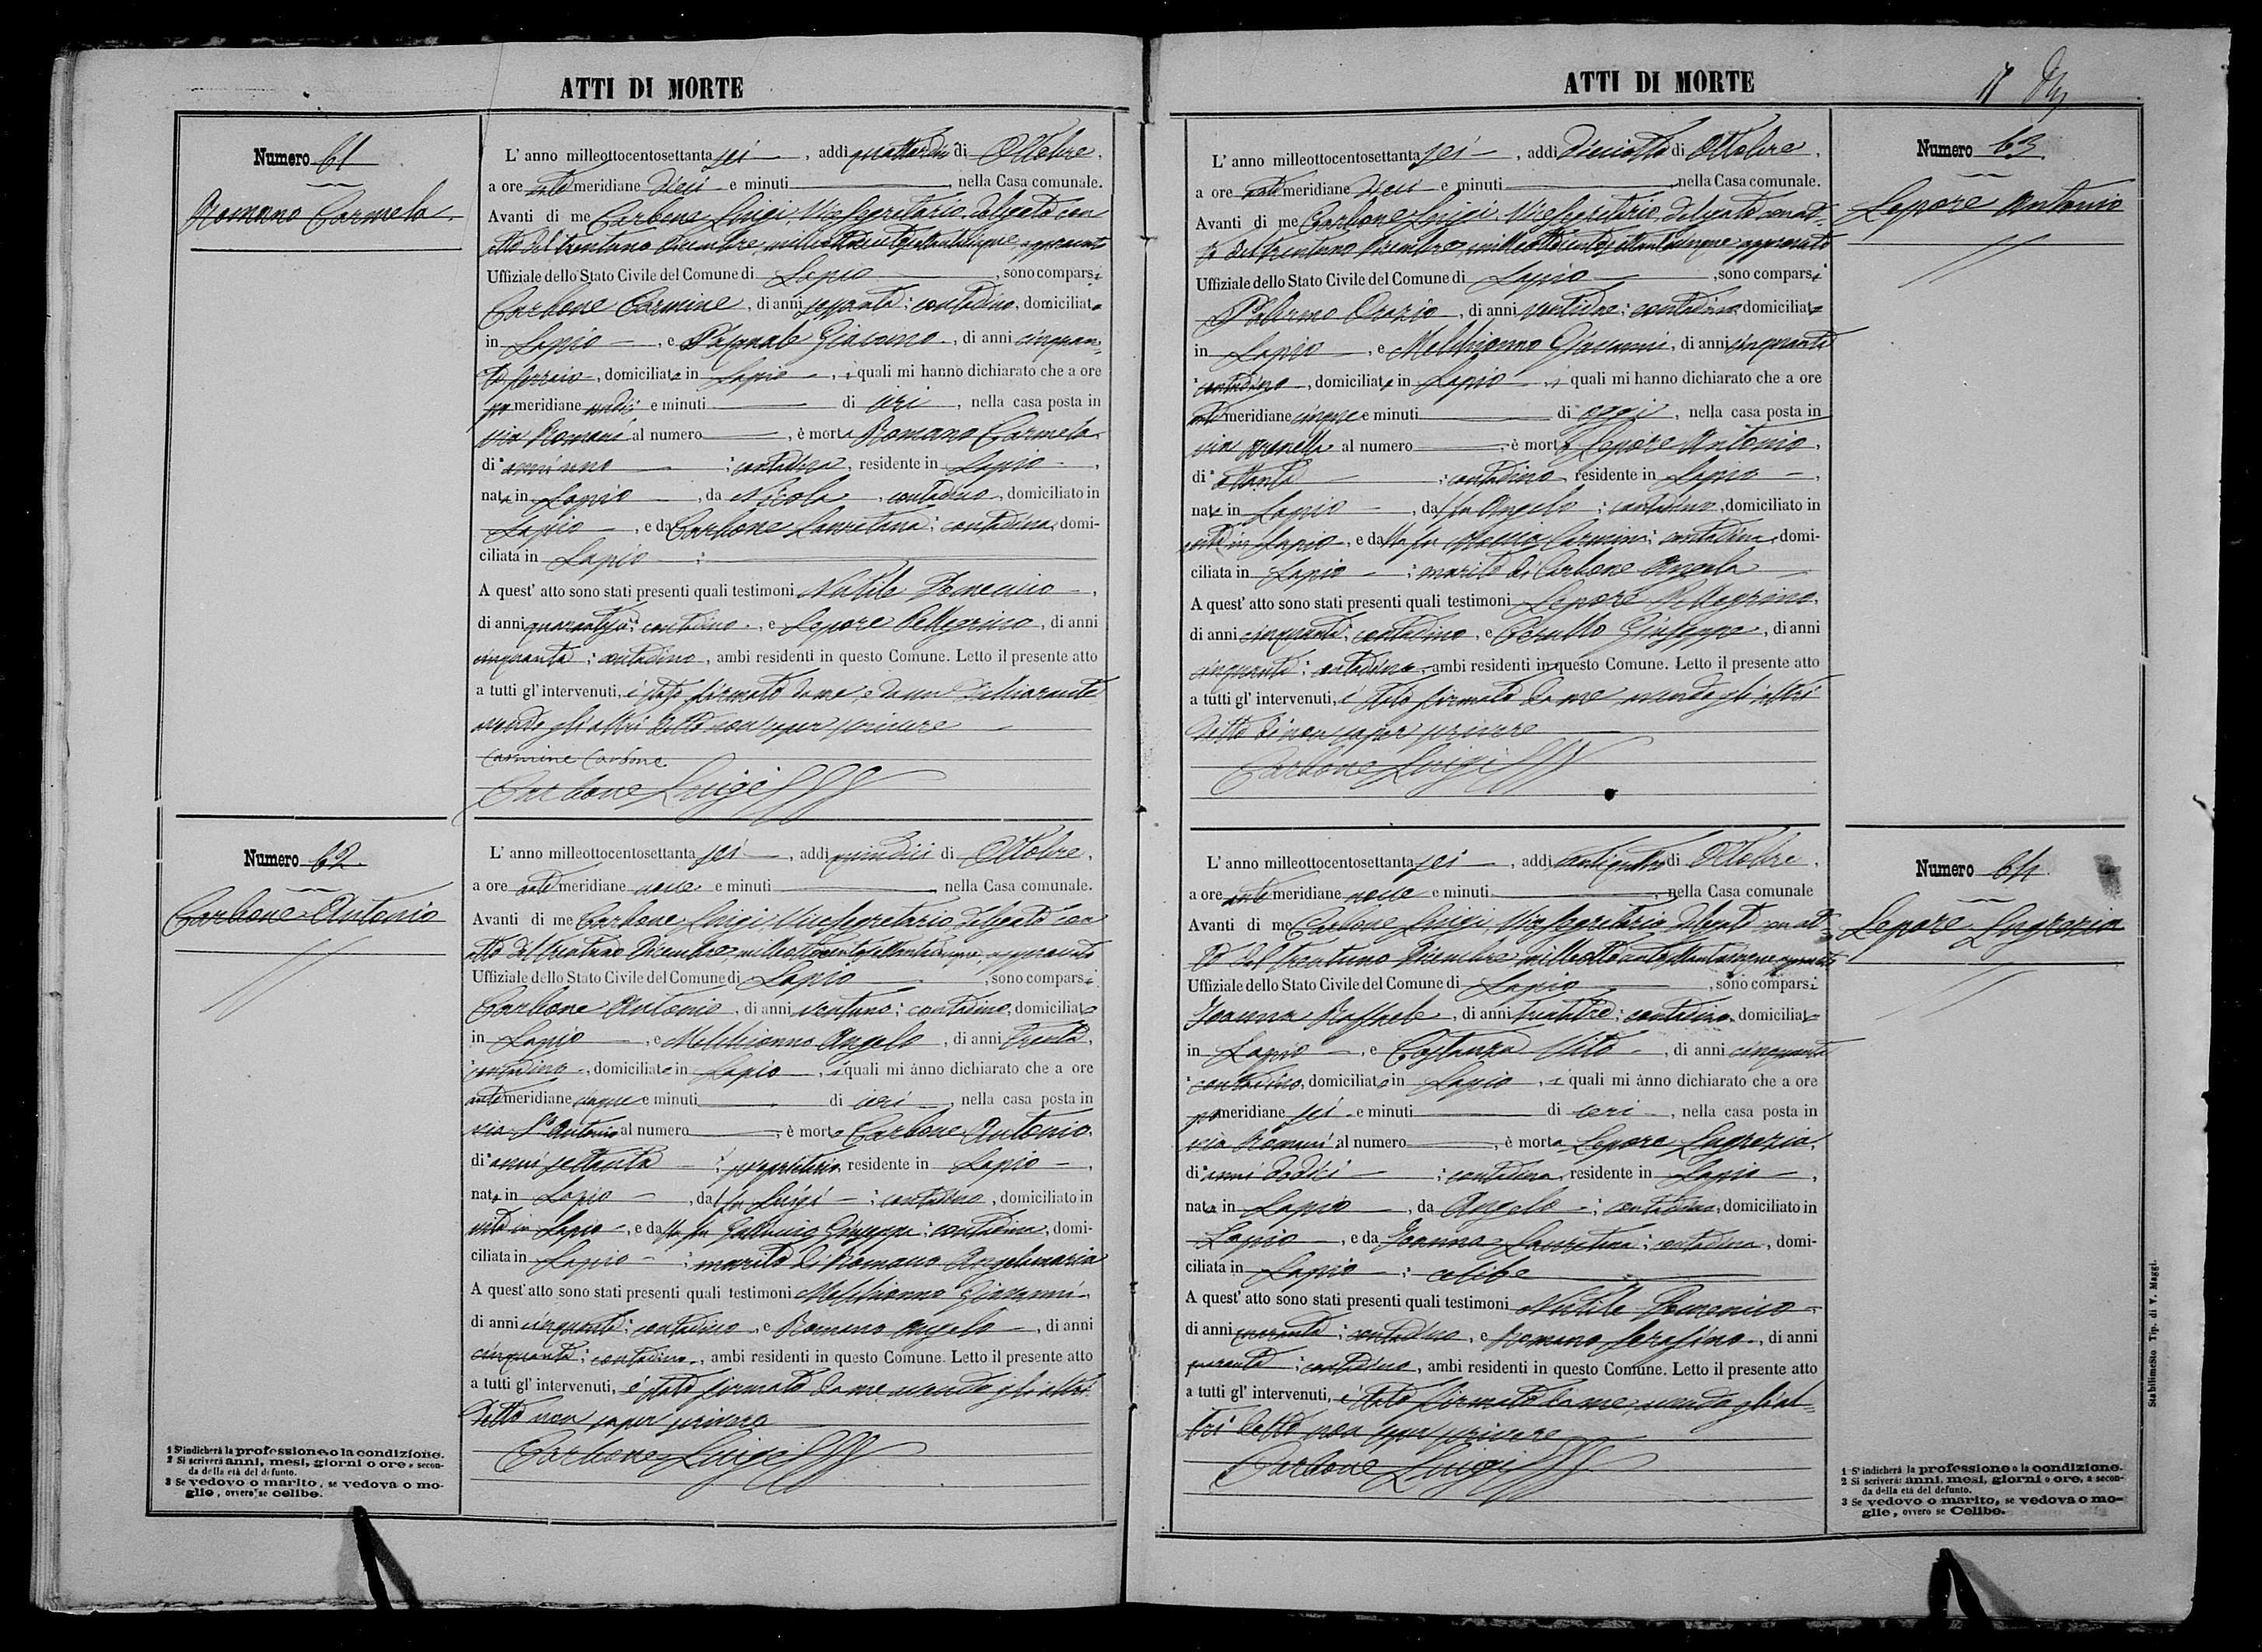 ATTI DI MORTE
Numero 61
Romano Carmela
L' anno milleottocentosettanta sei, addi quattordici di Ottobre,
a ore ante meridiane dieci e minuti , nella Casa comunale.
Avanti di me Carbone Luigi Vice Segretario delegato con
atto del trentuno Dicembre milleottocentosettantacinque approvato
Uffiziale dello Stato Civile del Comune di Lapio , sono comparsi
Carbone Carmine, di anni sessanta; contadino, domiciliato
in Lapio , e Pasquale Giacomo, di anni cinquan-
ta ferraio, domiciliato in Lapio , i quali mi hanno dichiarato che a ore
po meridiane undici e minuti di ieri , nella casa posta in
via Romani al numero , è morta Romano Carmela
di anni uno ; contadina, residente in Lapio ,
nata in Lapio , da Nicola, contadino, domiciliato in
Lapio , e da Carbone Lauretana; contadina, domi-
ciliata in Lapio ;
A quest' atto sono stati presenti quali testimoni Nutile Domenico ,
di anni quarantasei; contadino, e Lepore Pellegrino, di anni
cinquanta; contadino, ambi residenti in questo Comune. Letto il presente atto
a tutti gl' intervenuti, è stato firmato da me e da un dichiarante
avendo gli altri detto non saper scrivere
Carmine Carbone
Carbone Luigi
Numero 62.
Carbone Antonio
L' anno milleottocentosettanta sei , addi quindici di Ottobre,
a ore ante meridiane nove e minuti nella Casa comunale.
Avanti di me Carbone Luigi Vice Segretario delegato con
atto del trentuno Dicembre milleottocentosettantacinque approvato
Uffiziale dello Stato Civile del Comune di Lapio , sono comparsi
Carbone Antonio, di anni ventuno; contadino, domiciliato
in Lapio , e Melchionno Angelo , di anni trenta,
contadino, domiciliato in Lapio , i quali mi ànno dichiarato che a ore
ante meridiane cinque e minuti di ieri , nella casa posta in
via S. Antonio al numero , è morto Carbone Antonio,
di anni settanta ; proprietario, residente in Lapio ,
nato in Lapio , dal fu Luigi ; contadino, domiciliato in
vita in Lapio , e dalla fu Giuseppa; contadina, domi-
ciliata in Lapio ; marito di Romano Angelamaria
A quest' atto sono stati presenti quali testimoni Melchionno Giovanni
di anni cinquanta; contadino, e Romano Angelo , di anni
cinquanta; contadino, ambi residenti in questo Comune. Letto il presente atto
a tutti gl' intervenuti, è stato firmato da me avendo gli altri
detto non saper scrivere
Carbone Luigi
1 S' indicherà la professione o la condizione.
2 Si scriverà anni, mesi, giorni o ore, a secon-
da della età del defunto.
3 Se vedovo o marito, se vedova o mo-
glie, ovvero se celibe.
ATTI DI MORTE
17
Numero 63
Lepore Antonio
L' anno milleottocentosettanta sei , addi diciotto di Ottobre,
a ore ante meridiane dieci e minuti nella Casa comunale.
Avanti di me Carbone Luigi Vice Segretario delegato con at-
to del trentuno Dicembre milleottocentosettantacinque approvato
Uffiziale dello Stato Civile del Comune di Lapio , sono comparsi
Palermo Orazio, di anni ventidue; contadino, domiciliato
in Lapio , e Melchionno Giovanni, di anni cinquanta
contadino, domiciliato in Lapio , i quali mi hanno dichiarato che a ore
ante meridiane cinque e minuti di oggi , nella casa posta in
via al numero , è morto Lepore Antonio,
di ottanta ; contadino, residente in Lapio ,
nato in Lapio , dal fu Angelo ; contadino, domiciliato in
vita in Lapio , e dalla fu Carmina; contadina, domi-
ciliata in Lapio ; marito di Carbone Angela
A quest' atto sono stati presenti quali testimoni Lepore Pellegrino,
di anni cinquanta; contadino, e Cerullo Giuseppe, di anni
cinquanta; contadino, ambi residenti in questo Comune. Letto il presente atto
a tutti gl' intervenuti, è stato firmato da me avendo gli altri
detto di non saper scrivere
Carbone Luigi
Numero 64.
Lepore Lugrezia
L' anno milleottocentosettanta sei , addi ventiquattro di Ottobre,
a ore ante meridiane nove e minuti , nella Casa comunale
Avanti di me Carbone Luigi Vice Segretario delegato con at-
to del trentuno Dicembre milleottocentosettantacinque approvato
Uffiziale dello Stato Civile del Comune di Lapio , sono comparsi
Joanna Raffaele, di anni trentatre; contadino, domiciliato
in Lapio , e Costanza Vito , di anni cinquanta
contadino, domiciliato in Lapio , i quali mi ànno dichiarato che a ore
po meridiane sei e minuti di ieri , nella casa posta in
via Romani al numero , è morta Lepore Lugrezia,
di anni dodici ; contadina, residente in Lapio ,
nata in Lapio , da Angelo ; contadino, domiciliato in
Lapio , e da Joanna Lauretana; contadina, domi-
ciliata in Lapio ; celibe
A quest' atto sono stati presenti quali testimoni Nutile Domenico
di anni quaranta; contadino, e Romano Serafino, di anni
quaranta; contadino, ambi residenti in questo Comune. Letto il presente atto
a tutti gl' intervenuti, è stato firmato da me avendo gli al-
tri detto non saper scrivere
Carbone Luigi
1 S' indicherà la professione o la condizione.
2 Si scriverà: anni, mesi, giorni o ore, a secon-
da della età del defunto.
3 Se vedovo o marito, se vedova o mo-
glie, ovvero se Celibe.
Stabilimento Tip. di V. Maggi.